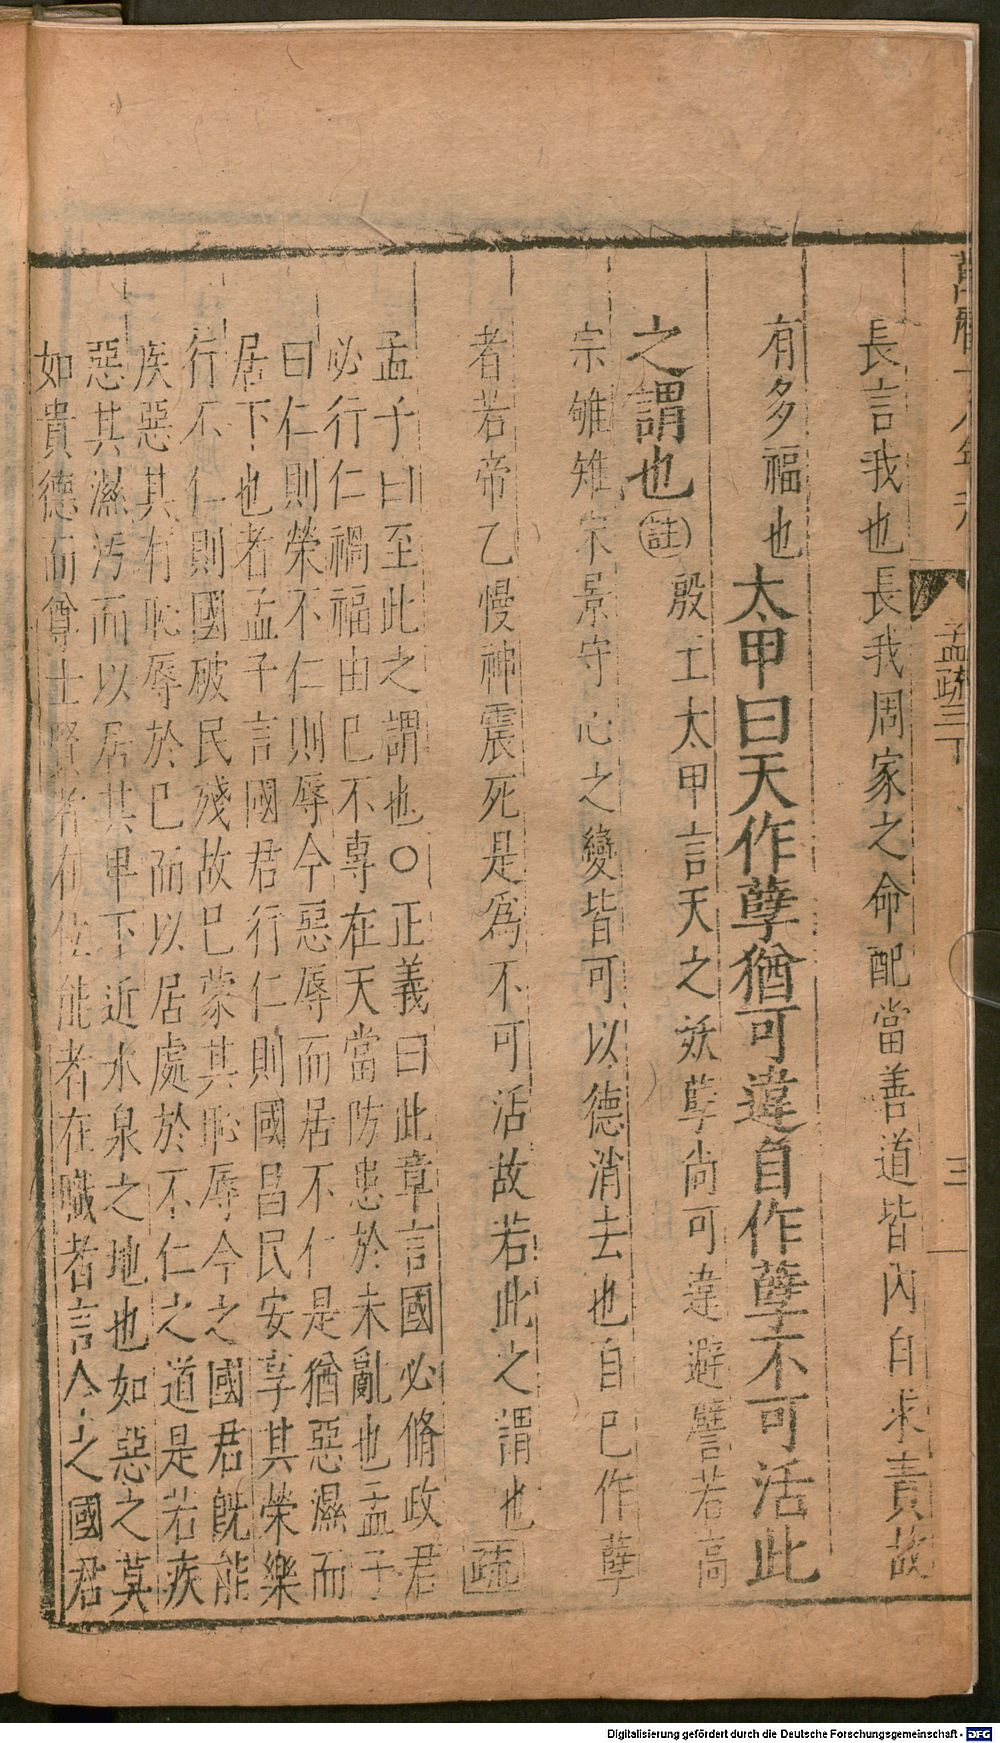 孟疏三下
三
長言我也長我周家之命配當善道皆內自求責故
有多福也太甲曰天作孽猶可違自作孽不可活此
之謂也註殷王太甲言天之妖孽尚可違避譬若高
宗雊雉宋景守心之變皆可以德消去也自己作孽
者若帝乙慢神震死是為不可活故若此之謂也疏
孟子曰至此之謂也〇正義曰此章言國必脩政君
必行仁禍福由己不專在天當防患於未亂也孟子
曰仁則榮不仁則辱今惡辱而居不仁是猶惡濕而
居下也者孟子言國君行仁則國昌民安享其榮樂
行不仁則國破民殘故已蒙其恥辱今之國君既能
疾惡其有恥辱於已而以居處於不仁之道是若疾
惡其濕汚而以居其卑下近水泉之地也如惡之莫
如貴德而尊士賢者在位能者在職者言今之國君
Digitalisierung gefördert durch die Deutsche Forschungsgemeinschaft - DFG